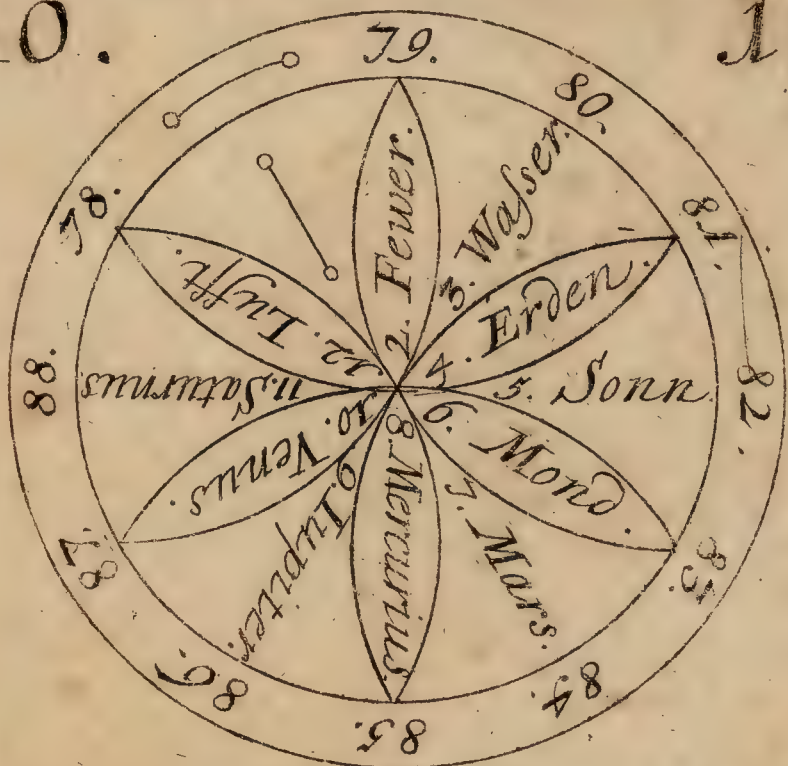 0.
1
79.
80.
81.
82.
83.
84.
85.
86.
87.
88.
78.
2. Fewer.
3. Waſser.
4. Erden.
5. Sonn
6. Mond.
7. Mars.
8. Mercurius.
9. Iupiter.
10. Venus.
11. Saturnus
12. Lufft.